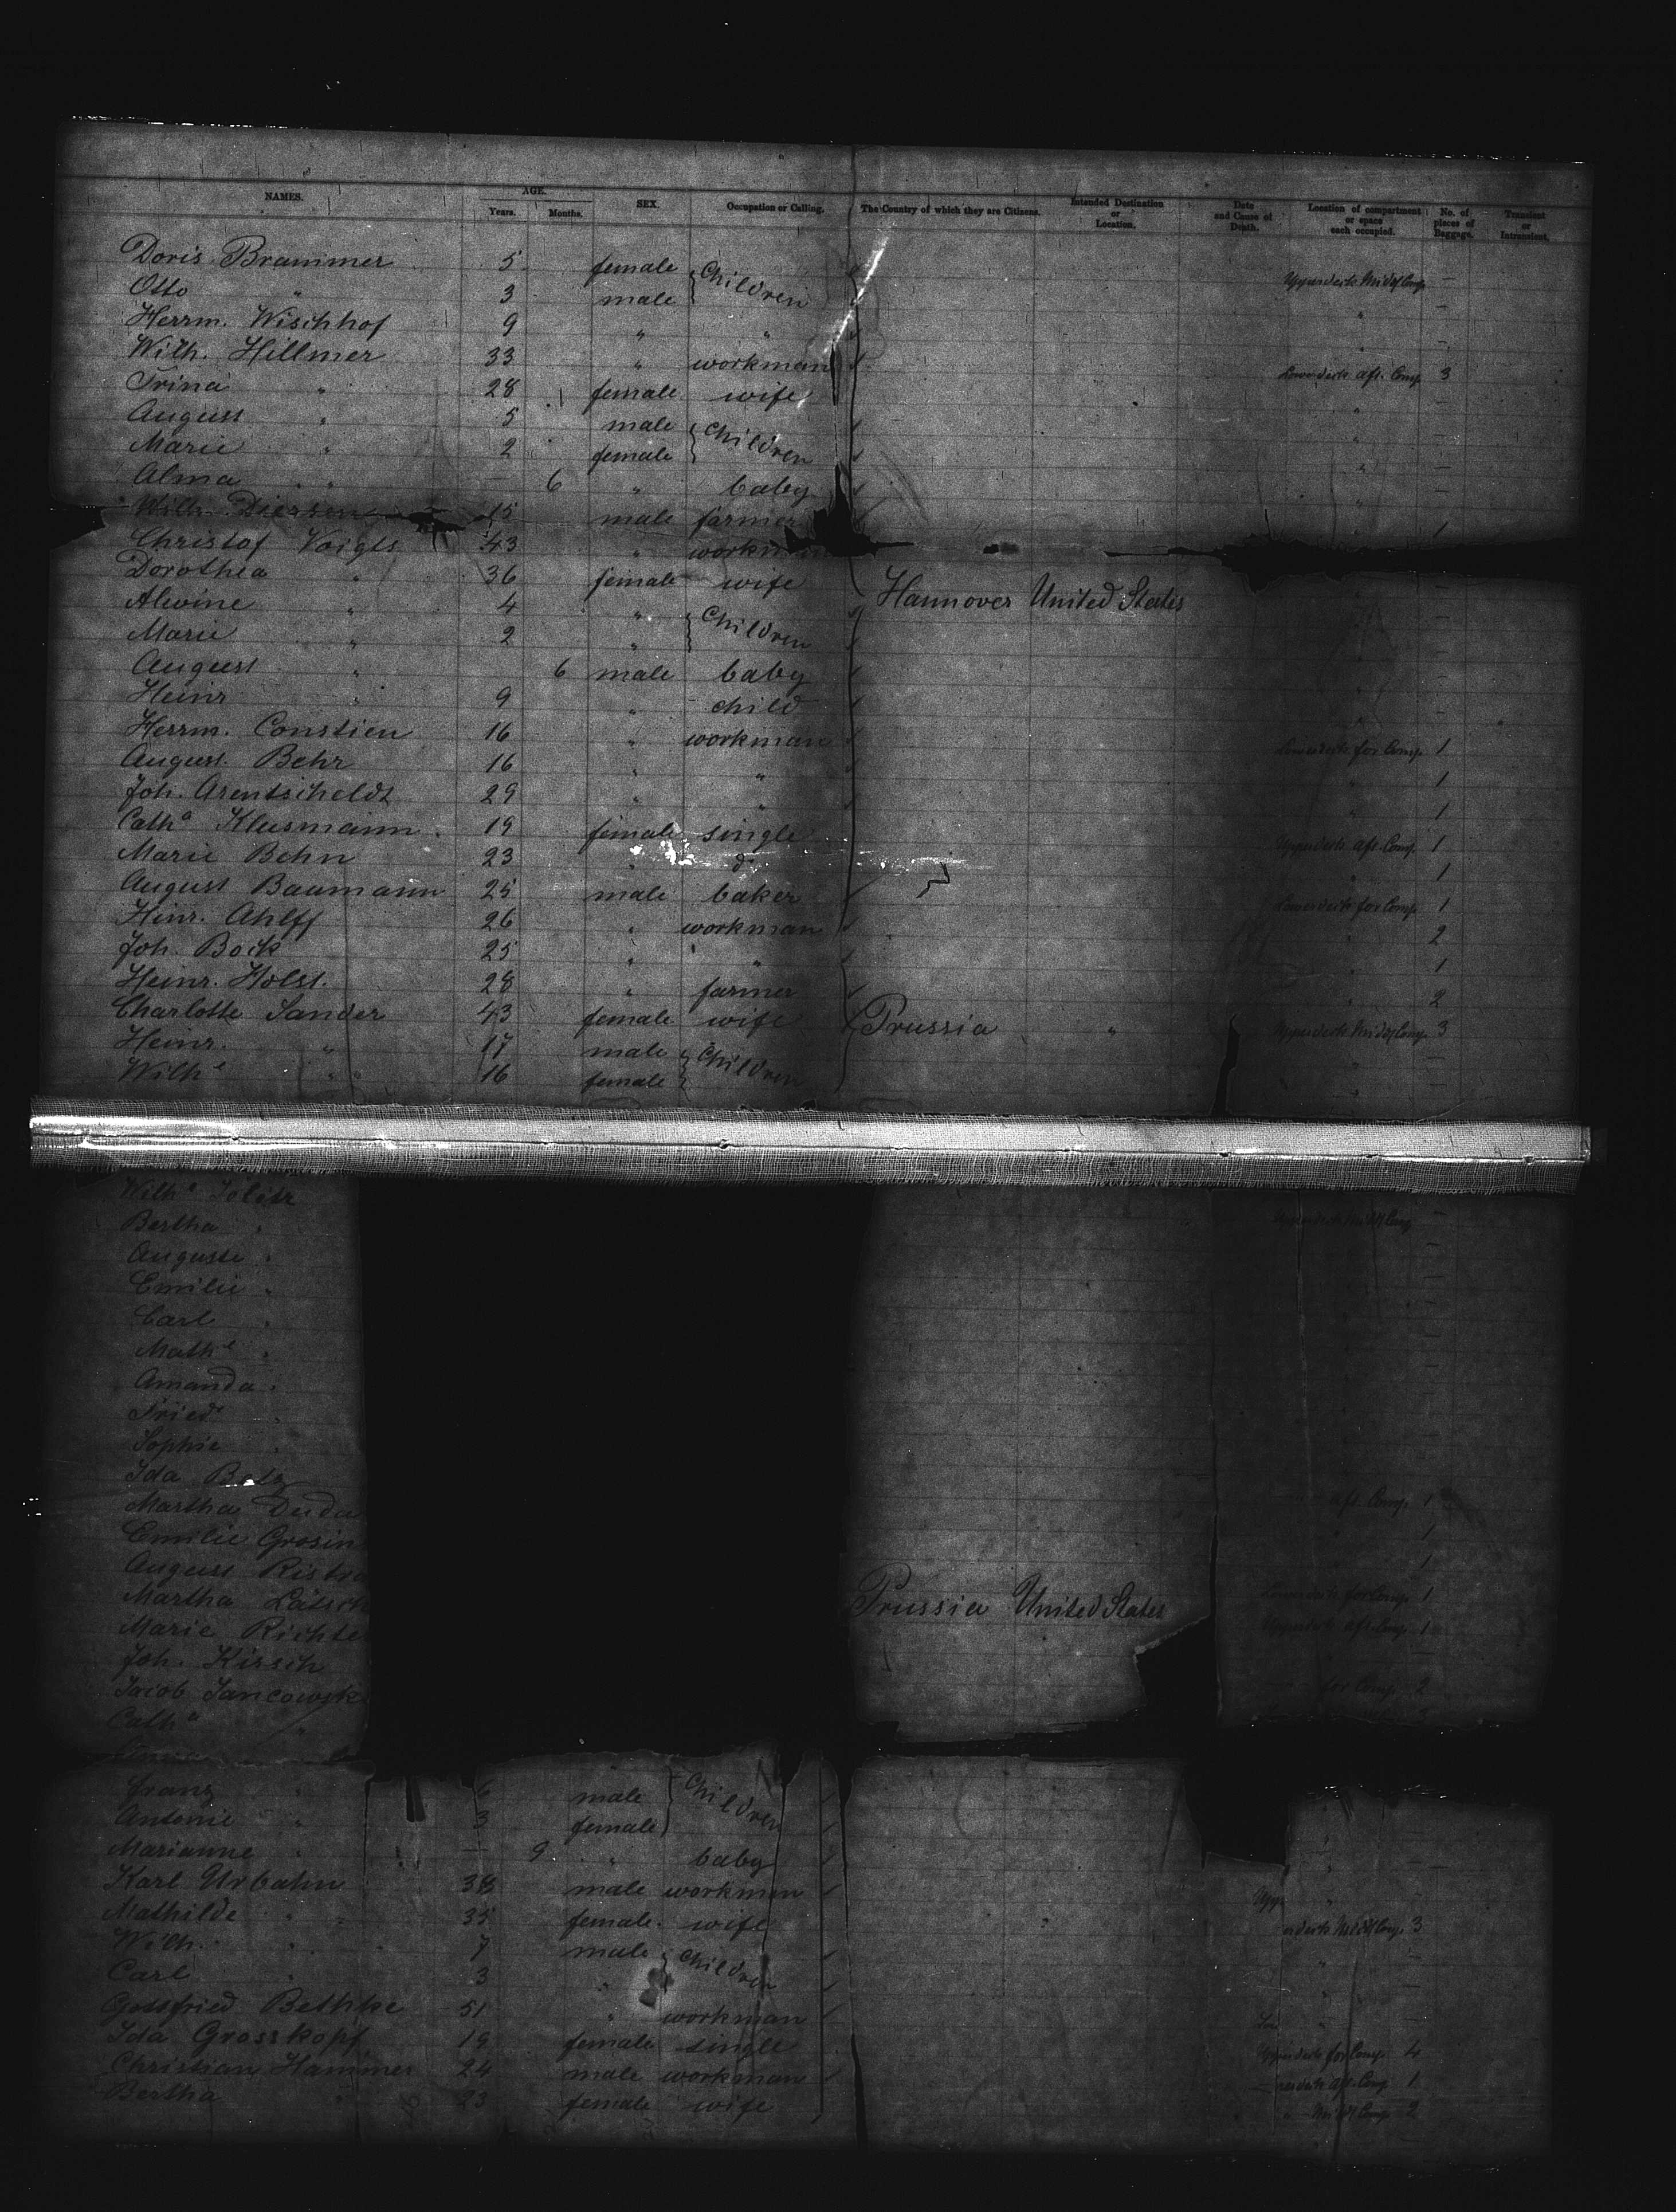 NAMES. AGE. SEX. Occupation or Calling. The Country of which they are Citizens. Intended Destination or Location. Date and Cause of Death. Location of compartment or space each occupied. No. of pieces of Baggage. Transient or Intransient.
Years. Months.
Doris Brammer 5 female Children Upperdeck Middl Comp —
Otto " 3 male " —
Herrm. Wischhof 9 " " " —
Wilh. Hillmer 33 " workman Lowerdeck aft. Comp 3
Trina " 28 female wife " —
August " 5 male Children " —
Marie " 2 female " —
Alma " — 6 " baby " —
Wilh. Diersen 15 male farmer 1
Christof Voigts 43 " workman
Dorothea " 36 female wife Hannover United States —
Alwine " 4 " Children —
Marie " 2 " —
August " 6 male baby —
Heinr " 9 " child —
Herrm. Constien 16 " workman Lowerdeck for Comp. 1
August Behr 16 " " " 1
Joh. Arentscheldt 29 " " " 1
Cath.a Klusmann 19 female single Upperdeck aft. Comp. 1
Marie Behn 23 " do " 1
August Baumann 25 male baker Lowerdeck for Comp. 1
Hinr. Ahlff 26 " workman " 2
Joh. Bock 25 " " " 1
Heinr. Holst. 28 " farmer " 2
Charlotte Sander 43 female wife Prussia " Upperdeck Middl Comp. 3
Heinr. " 17 male Children —
Wilh.e " 16 female —
Wilh.e
Bertha " Upperdeck Middl Comp —
Auguste " —
Emilie " —
Carl " —
Math.e " —
Amanda " —
Fried. " —
Sophie " —
Ida Betz
Martha Duda aft. Comp. 1
Emilie Grosin 1
August Ristro 1
Martha Lätsch Prussia United States Lowerdeck for Comp. 1
Marie Richte Upperdeck aft. Comp. 1
Joh. Kirsch
Jacob Jancowsk for Comp. 2
Cath.a "
Franz " 6 male Children
Antonie " 3 female "
Marianne " — 9 " baby "
Karl Urbahn 38 male workman Upp "
Mathilde " 35 female wife erdeck Middl Comp. 3
Wilh. " 7 male Children —
Carl " 3 " " —
Gottfried Bethke 51 " workman "
Ida Grosskopf 19 female single Upperdeck for Comp 4
Christian Hammer 24 male workman aft. Comp 1
Bertha " 23 female wife " Middl Comp. 2